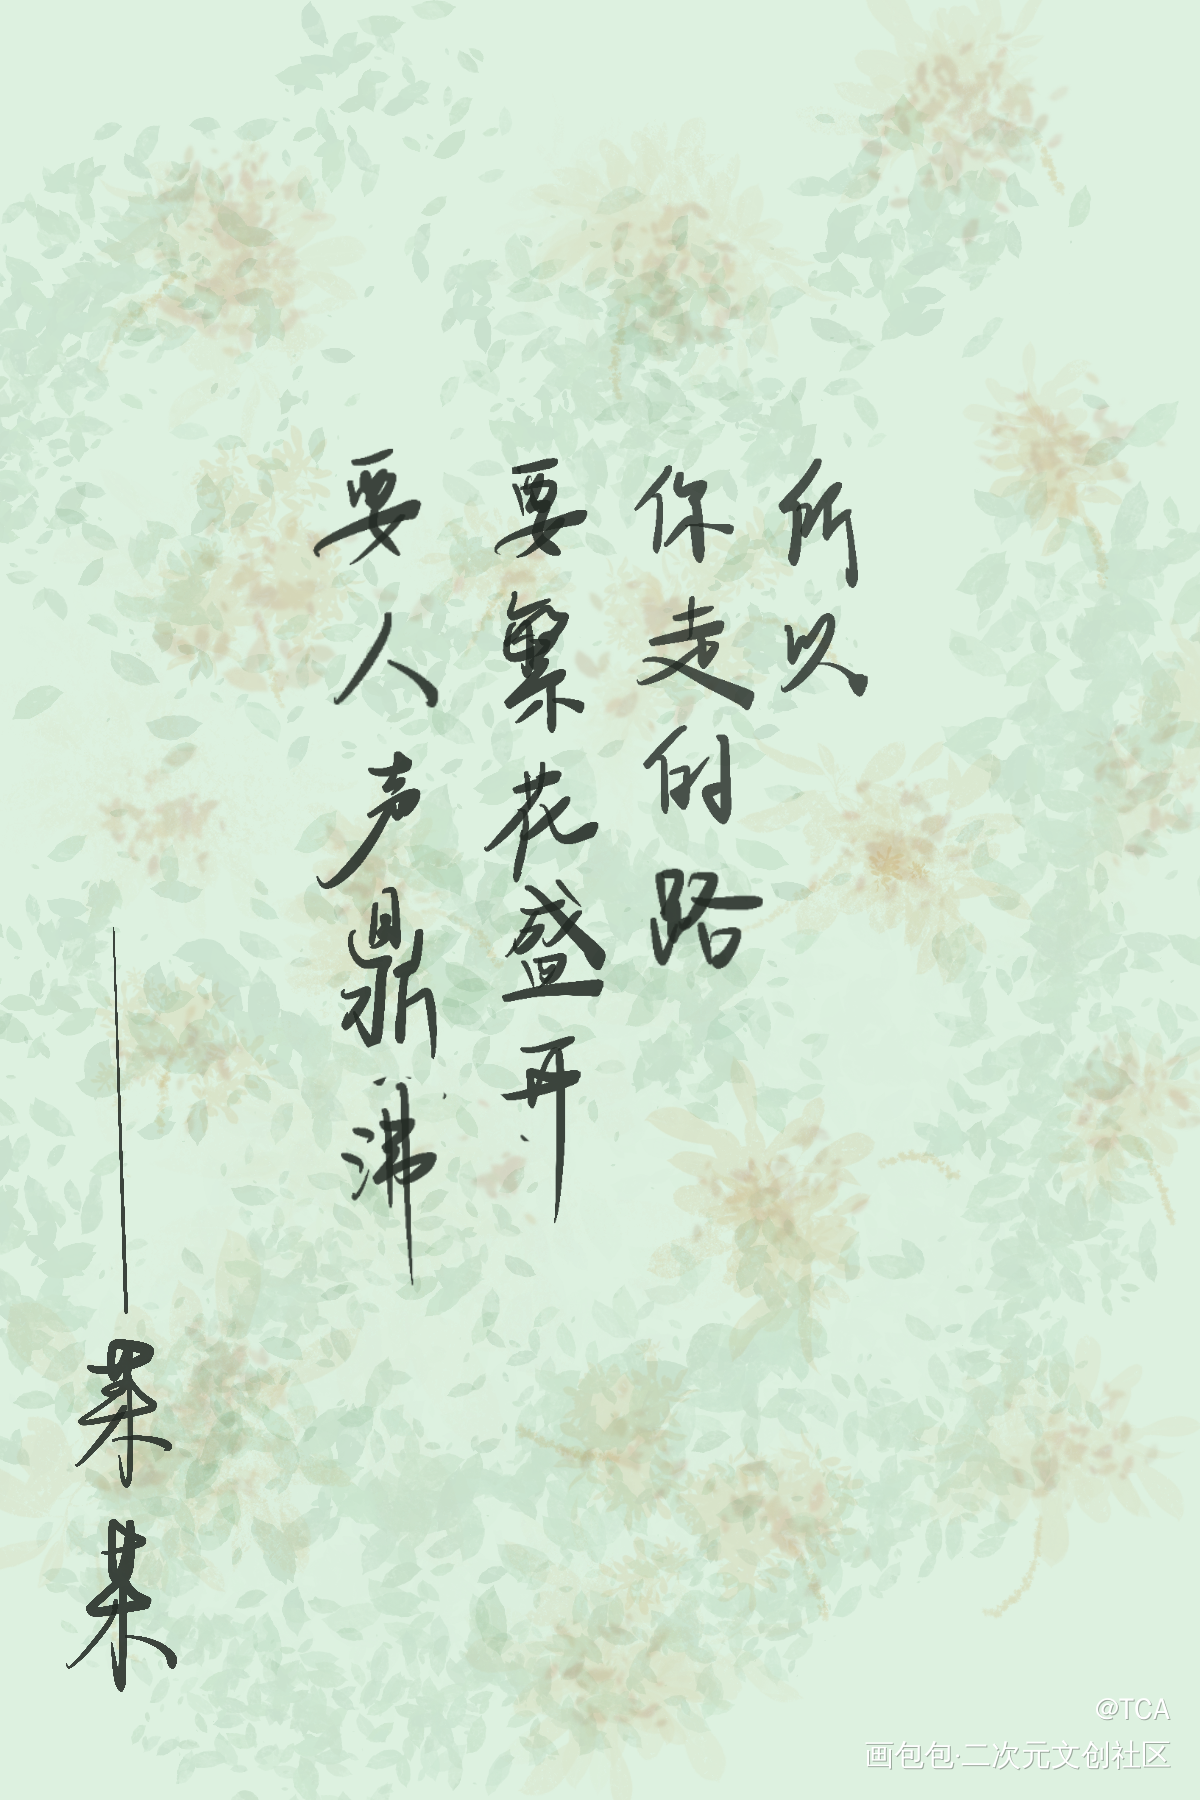 所以
你走的路
要繁花盛开
要人声鼎沸
——某某
@TCA
画包包·二次元文创社区